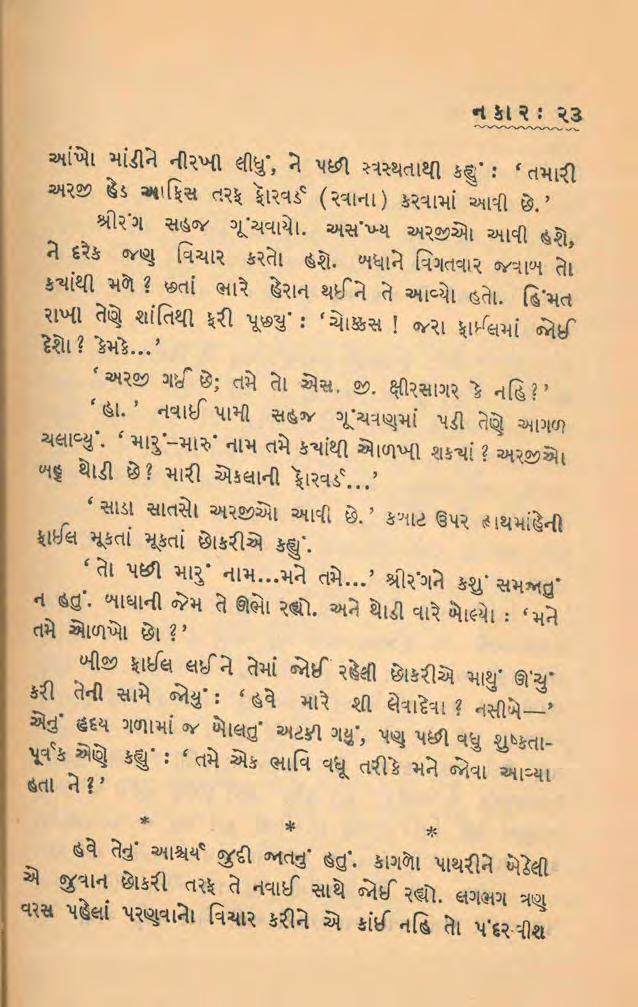 નકાર : ૨૩
આંખો માંડીને નીરખી લીધું, ને પછી સ્વસ્થતાથી કહ્યું : ‘ તમારી
અરજી હેડ ઑફિસ તરફ ફૉરવર્ડ (રવાના) કરવામાં આવી છે.’
શ્રીરંગ સહજ ગૂંચવાયો. અસંખ્ય અરજીઓ આવી હશે,
ને દરેક જણ વિચાર કરતો હશે. બધાને વિગતવાર જવાબ તો
ક્યાંથી મળે ? છતાં ભારે હેરાન થઈને તે આવ્યો હતો. હિંમત
રાખી તેણે શાંતિથી ફરી પૂછ્યું : ‘ચોક્કસ ! જરા ફાઈલમાં જોઈ
દેશો ? કેમકે...’
‘અરજી ગઈ છે; તમે તો એસ. જી. ક્ષીરસાગર કે નહિ?’
‘હા.’ નવાઈ પામી સહજ ગૂંચવણમાં પડી તેણે આગળ
ચલાવ્યું. ‘મારું–મારું નામ તમે ક્યાંથી ઓળખી શક્યાં ? અરજીઓ
બહુ થોડી છે? મારી એકલાની ફૉરવર્ડ...’
‘સાડા સાતસો અરજીઓ આવી છે.’ કબાટ ઉપર હાથમાંહેની
ફાઈલ મૂકતાં મૂકતાં છોકરીએ કહ્યું.
‘તો પછી મારું નામ...મને તમે...’ શ્રીરંગને કશું સમજાતું
ન હતું. બાઘાની જેમ તે ઊભો રહ્યો. અને થોડી વારે બોલ્યો : ‘મને
તમે ઓળખો છો ?’
બીજી ફાઈલ લઈને તેમાં જોઈ રહેલી છોકરીએ માથું ઊંચું
કરી તેની સામે જોયું : ‘હવે મારે શી લેવાદેવા ? નસીબે—’
એનું હૃદય ગળામાં જ બોલતું અટકી ગયું, પણ પછી વધુ શુષ્કતા-
પૂર્વક એણે કહ્યું : ‘તમે એક ભાવિ વધૂ તરીકે મને જોવા આવ્યા
હતા ને ?’
* * *
હવે તેનું આશ્ચર્ય જુદી જાતનું હતું. કાગળો પાથરીને બેઠેલી
એ જુવાન છોકરી તરફ તે નવાઈ સાથે જોઈ રહ્યો. લગભગ ત્રણ
વરસ પહેલાં પરણવાનો વિચાર કરીને એ કાંઈ નહિ તો પંદર-વીશ